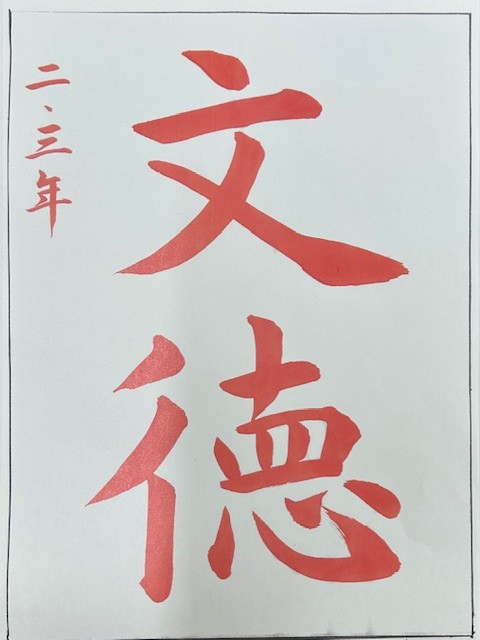 文徳
二、三年